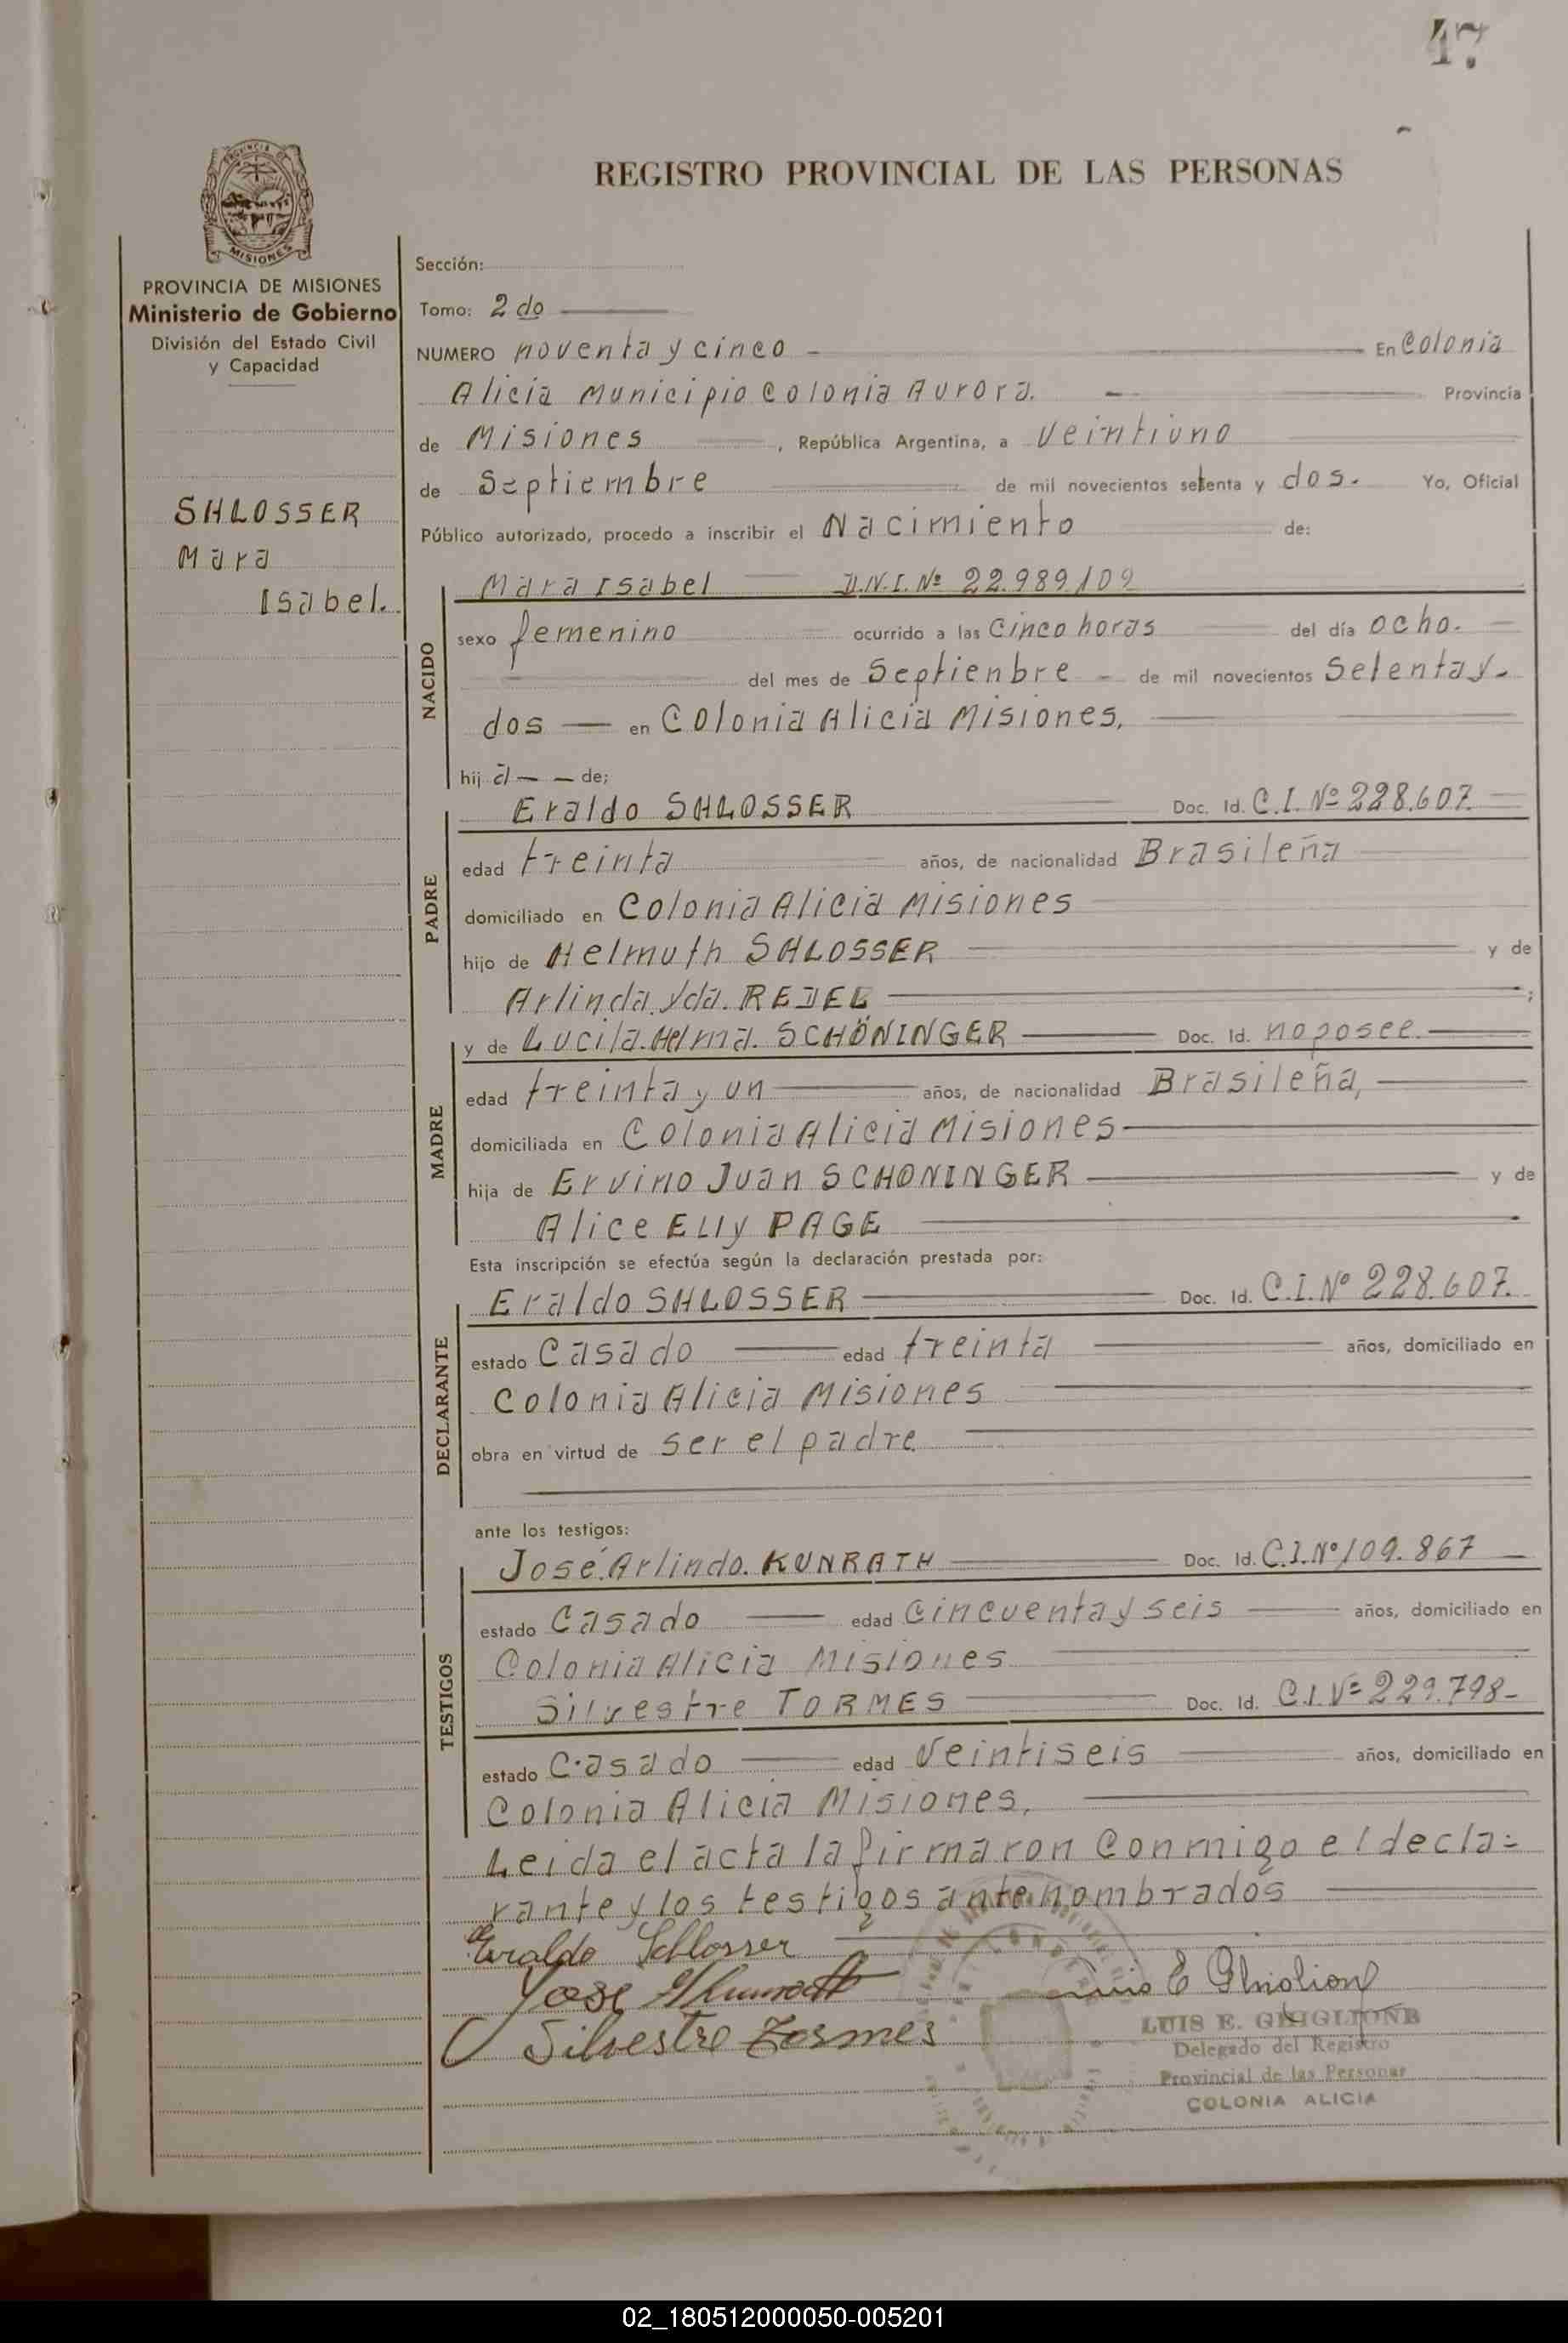 47
REGISTRO PROVINCIAL DE LAS PERSONAS
MISIONES
PROVINCIA DE MISIONES
Ministerio de Gobierno
División del Estado Civil
y Capacidad
SHLOSSER
Mara
Isabel.
Sección:
Tomo: 2do
NUMERO noventa y cinco - En Colonia
Alicia Municipio Colonia Aurora. - Provincia
de Misiones , República Argentina, a veintiuno
de Septiembre de mil novecientos setenta y dos. Yo, Oficial
Público autorizado, procedo a inscribir el Nacimiento de:
NACIDO
Mara Isabel D.N.I. Nº 22.989.109
sexo femenino ocurrido a las Cinco horas del día ocho.
del mes de Septienbre - de mil novecientos Setenta y
dos — en Colonia Alicia Misiones.
hij a — — de;
PADRE
Eraldo SHLOSSER Doc. Id. C.I. Nº 228.607
edad treinta años, de nacionalidad Brasileña
domiciliado en Colonia Alicia Misiones
hijo de Helmuth SHLOSSER y de
Arlinda. Yda. REDEL ;
MADRE
y de Lucila. Helma. SCHÖNINGER Doc. Id. no posee.
edad treinta y un años, de nacionalidad Brasileña,
domiciliada en Colonia Alicia Misiones
hija de Ervino Juan SCHONINGER y de
Alice Elly PAGE
Esta inscripción se efectúa según la declaración prestada por:
DECLARANTE
Eraldo SHLOSSER Doc. Id. C.I. Nº 228.607.
estado Casado edad treinta años, domiciliado en
Colonia Alicia Misiones
obra en virtud de ser el padre
ante los testigos:
TESTIGOS
José Arlindo. KUNRATH Doc. Id. C.I. Nº 109.867
estado Casado edad Cincuenta y seis años, domiciliado en
Colonia Alicia Misiones
Silvestre TORMES Doc. Id. C.I. Nº 229.798-
estado Casado edad Veintiseis años, domiciliado en
Colonia Alicia Misiones.
Leida el acta la firmaron Conmigo el decla=
rante y los testigos ante nombrados
Eraldo Schlosser
Jose A Kunrath
Silvestre Tormes
Luis E Ghiglione
LUIS E. GHIGLIONE
Delegado del Registro
Provincial de las Personas
COLONIA ALICIA
02_180512000050-005201